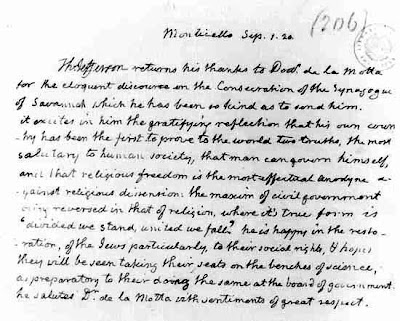 (206)
Monticello Sep. 1. 20.
Th. Jefferson returns his thanks to Doctr. de la Motta
for the eloquent discourse on the Consecration of the Synagogue
of Savannah which he has been so kind as to send him.
it excites in him the gratifying reflection that his own coun-
try has been the first to prove to the world two truths, the most
salutary to human society, that man can govern himself,
and that religious freedom is the most effectual anodyne a-
gainst religious dissension: the maxim of civil government
being reversed in that of religion, where it's true form is
"divided we stand, united we fall." he is happy in the resto-
ration, of the Jews particularly, to their social rights, & hopes
they will be seen taking their seats on the benches of science,
as preparatory to their doing the same at the board of government.
he salutes Dr. de la Motta with sentiments of great respect.